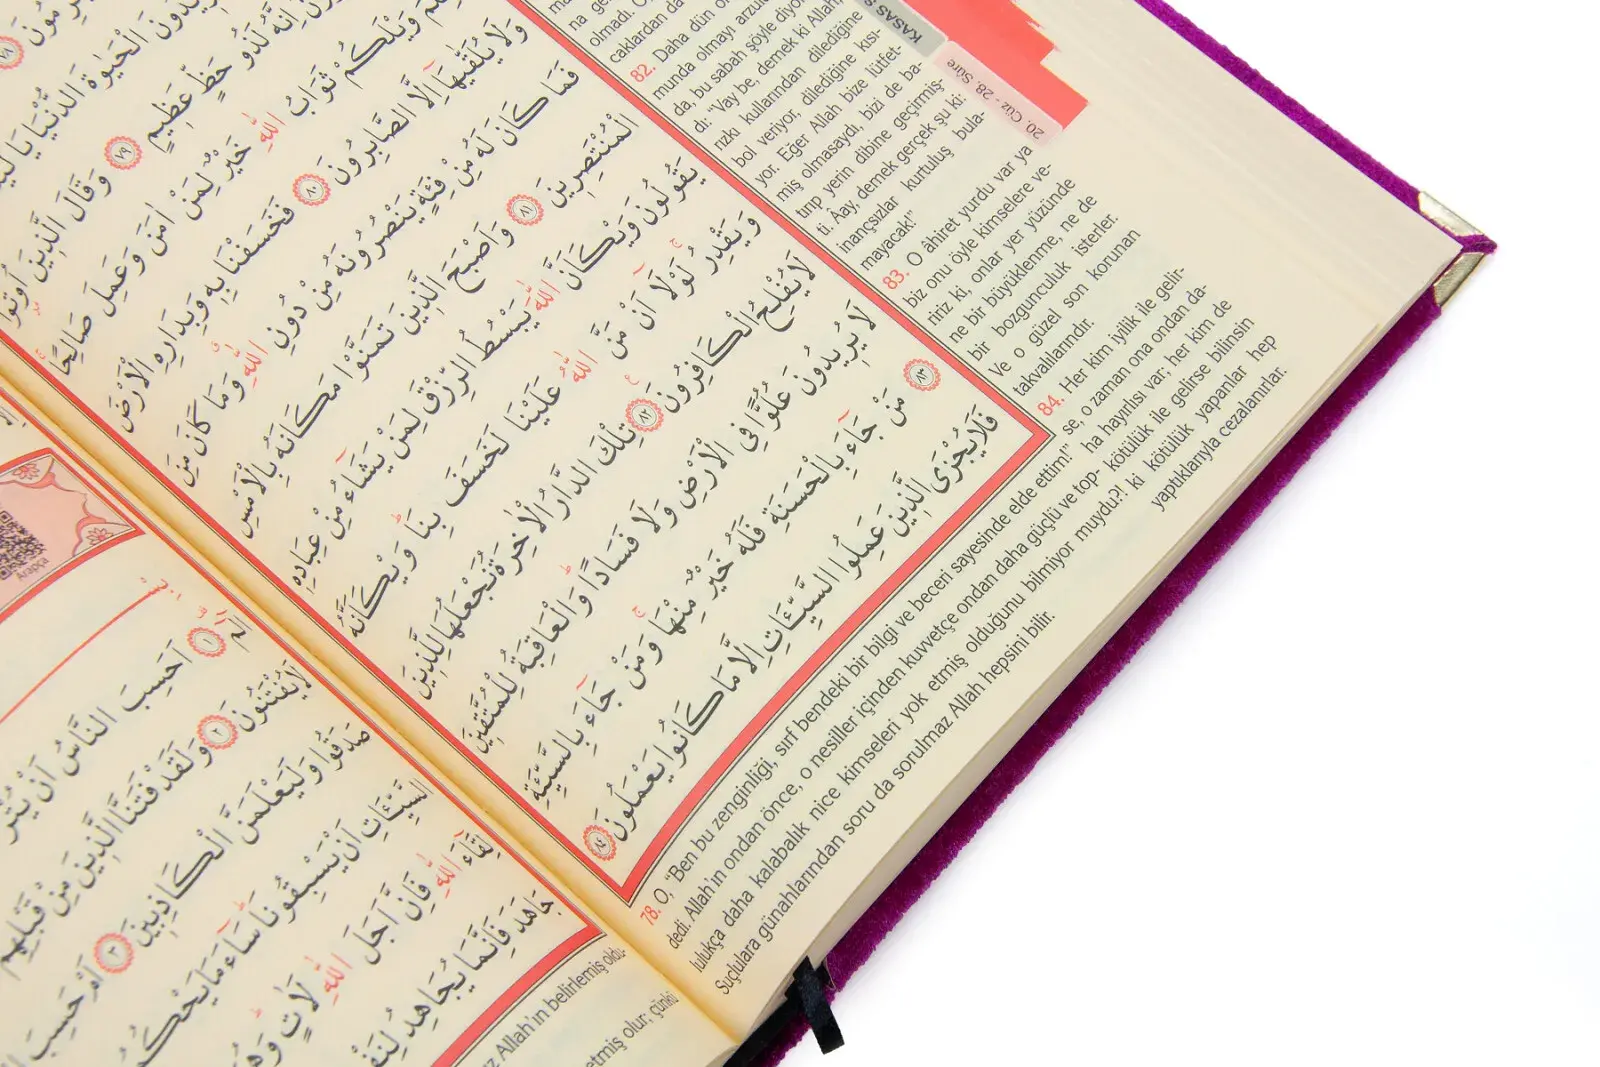 يُرِيدُونَ الْحَيٰوةَ الدُّنْيَا يَا لَيْتَ
اِنَّهُ لَذُو حَظٍّ عَظِيمٍ ٧٩ وَقَالَ الَّذِينَ اُوتُوا
وَيْلَكُمْ ثَوَابُ اللّٰهِ خَيْرٌ لِمَنْ اٰمَنَ وَعَمِلَ صَالِحًا
وَلَا يُلَقّٰيهَٓا اِلَّا الصَّابِرُونَ ٨٠ فَخَسَفْنَا بِهِ وَبِدَارِهِ الْاَرْضَ
فَمَا كَانَ لَهُ مِنْ فِئَةٍ يَنْصُرُونَهُ مِنْ دُونِ اللّٰهِ وَمَا كَانَ مِنَ
الْمُنْتَصِرِينَ ٨١ وَاَصْبَحَ الَّذِينَ تَمَنَّوْا مَكَانَهُ بِالْاَمْسِ
يَقُولُونَ وَيْكَاَنَّ اللّٰهَ يَبْسُطُ الرِّزْقَ لِمَنْ يَشَٓاءُ مِنْ عِبَادِهِ
وَيَقْدِرُ لَوْلَٓا اَنْ مَنَّ اللّٰهُ عَلَيْنَا لَخَسَفَ بِنَا وَيْكَاَنَّهُ
لَا يُفْلِحُ الْكَافِرُونَ ٨٢ تِلْكَ الدَّارُ الْاٰخِرَةُ نَجْعَلُهَا لِلَّذِينَ
لَا يُرِيدُونَ عُلُوًّا فِي الْاَرْضِ وَلَا فَسَادًا وَالْعَاقِبَةُ لِلْمُتَّقِينَ
٨٣ مَنْ جَٓاءَ بِالْحَسَنَةِ فَلَهُ خَيْرٌ مِنْهَا وَمَنْ جَٓاءَ بِالسَّيِّئَةِ
فَلَا يُجْزَى الَّذِينَ عَمِلُوا السَّيِّـَٔاتِ اِلَّا مَا كَانُوا يَعْمَلُونَ ٨٤
KASAS
20. Cüz - 28. Sûre
olmadı.
caklardan da
82. Daha dün
munda olmayı
da, bu sabah şöyle
di: "Vay be, demek ki Allah
rızkı kullarından dilediğine
bol veriyor, dilediğine kısı-
yor. Eğer Allah bize lütfet-
miş olmasaydı, bizi de ba-
tırıp yerin dibine geçirmiş-
ti. Âay, demek gerçek şu ki:
inançsızlar kurtuluş bula-
mayacak!"
83. O âhiret yurdu var ya
biz onu öyle kimselere ve-
ririz ki, onlar yer yüzünde
ne bir büyüklenme, ne de
bir bozgunculuk isterler.
Ve o güzel son korunan
takvalılarındır.
84. Her kim iyilik ile gelir-
se, o zaman ona ondan da-
ha hayırlısı var; her kim de
kötülük ile gelirse bilinsin
ki kötülük yapanlar hep
yaptıklarıyla cezalanırlar.
78. O, "Ben bu zenginliği, sırf bendeki bir bilgi ve beceri sayesinde elde ettim!"
dedi. Allah'ın ondan önce, o nesiller içinden kuvvetçe ondan daha güçlü ve top-
lulukça daha kalabalık nice kimseleri yok etmiş olduğunu bilmiyor muydu?!
Suçlulara günahlarından soru da sorulmaz Allah hepsini bilir.
Arapça
الٓمٓ ١ اَحَسِبَ النَّاسُ اَنْ
لَا يُفْتَنُونَ ٢ وَلَقَدْ فَتَنَّا الَّذِينَ مِنْ قَبْلِهِمْ
صَدَقُوا وَلَيَعْلَمَنَّ الْكَاذِبِينَ ٣ اَمْ حَسِبَ
السَّيِّـَٔاتِ اَنْ يَسْبِقُونَا سَٓاءَ مَا يَحْكُمُ
لِقَٓاءَ اللّٰهِ فَاِنَّ اَجَلَ اللّٰهِ لَاٰتٍ وَهُوَ
جَاهَدَ فَاِنَّمَا يُجَاهِدُ
Allah'ın belirlemiş oldu-
etmiş olur; çünkü